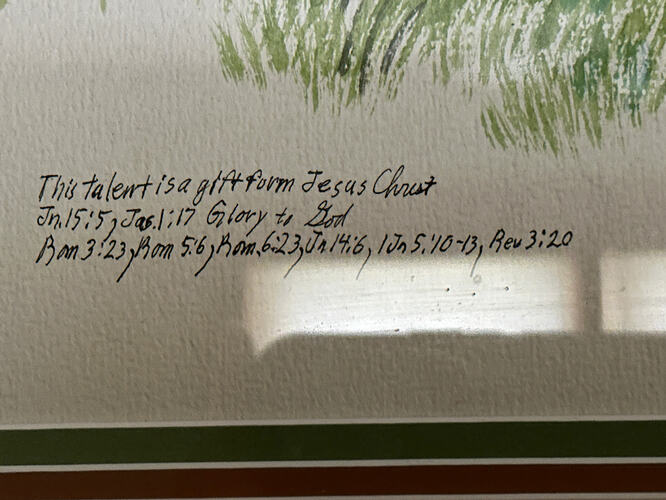 This talent is a gift form Jesus Christ
Jn.15:5, Jas.1:17 Glory to God
Rom 3:23, Rom 5:6, Rom.6:23, Jn 14:6, 1 Jn 5:10-13, Rev 3:20